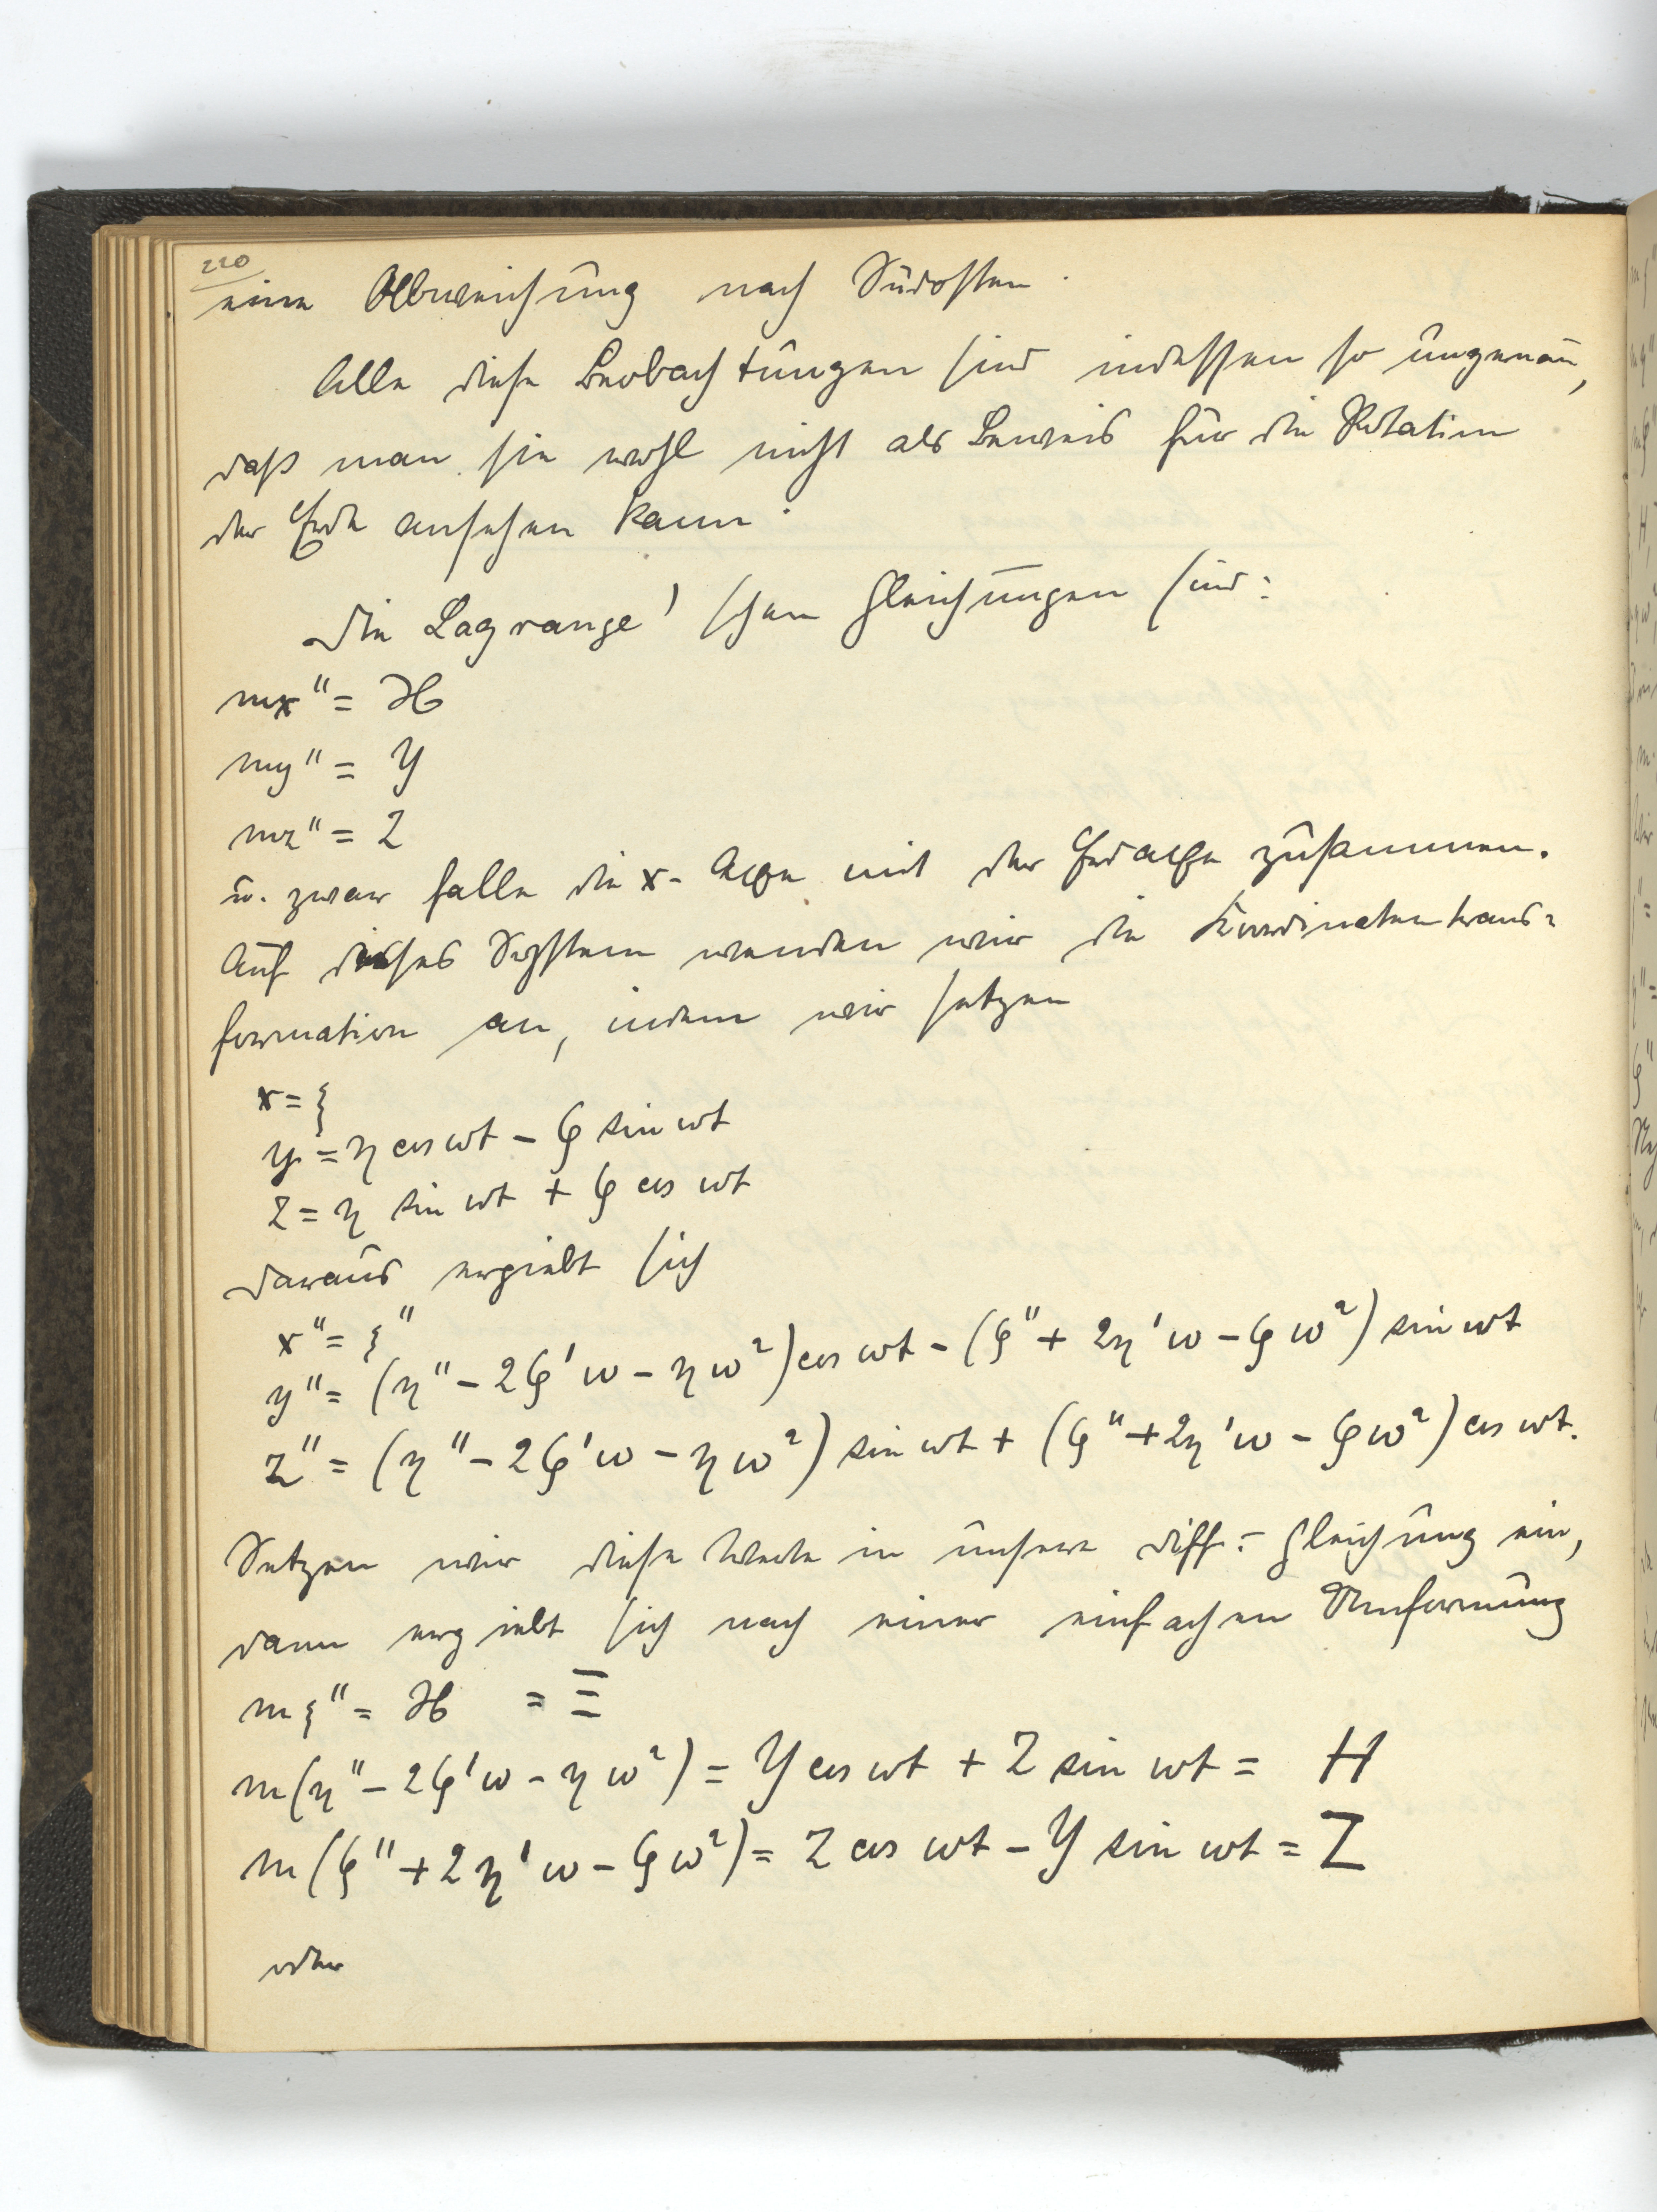 220
eine Abweichung nach Südosten.
Alle diese Beobachtungen sind indessen so ungenau,
daß man sie wohl nicht als Beweis für die Rotation
der Erde ansehen kann.
Die Lagrange'schen Gleichungen sind:
mx'' = X
my'' = Y
mz'' = Z
u. zwar falle die x-Achse mit der Erdachse zusammen.
Auf dieses System wenden wir die Koordinatentrans-
formation an, indem wir setzen
x = ξ
y = η cos ωt - ζ sin ωt
z = η sin ωt + ζ cos ωt
Daraus ergiebt sich
x'' = ξ''
y'' = (η'' - 2ζ'ω - ηω²) cos ωt - (ζ'' + 2η'ω - ζω²) sin ωt
z'' = (η'' - 2ζ'ω - ηω²) sin ωt + (ζ'' + 2η'ω - ζω²) cos ωt.
Setzen wir diese Werte in unsere Diff.-Gleichung ein,
dann ergiebt sich nach einer einfachen Umformung
mξ'' = X = Ξ
m(η'' - 2ζ'ω - ηω²) = Y cos ωt + Z sin ωt = H
m(ζ'' + 2η'ω - ζω²) = Z cos ωt - Y sin ωt = Z
oder